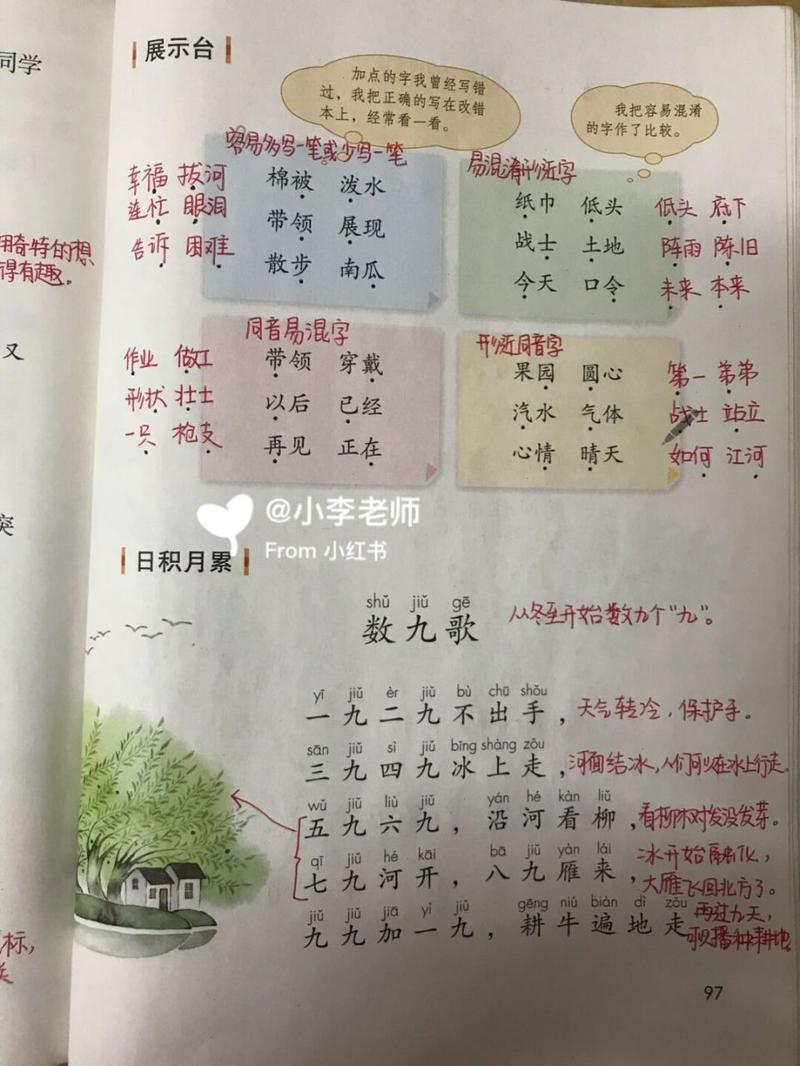 同学
展示台
加点的字我曾经写错
过，我把正确的写在改错
本上，经常看一看。
我把容易混淆
的字作了比较。
容易多写一笔或少写一笔
幸福 拔河 棉被 泼水
连忙 眼泪 带领 展现
告诉 困难 散步 南瓜
易混淆形近字
纸巾 低头 低头 底下
战士 土地 阵雨 陈旧
今天 口令 未来 本来
用奇特的想
得有趣。
又
同音易混字
作业 做工 带领 穿戴
形状 壮士 以后 已经
一只 枪支 再见 正在
形近同音字
果园 圆心 第一 弟弟
汽水 气体 战士 站立
心情 晴天 如何 江河
@小李老师
From 小红书
突
日积月累
shǔ jiǔ gē
数九歌 从冬至开始数九个“九”。
yī jiǔ èr jiǔ bù chū shǒu
一九二九不出手，天气转冷，保护手。
sān jiǔ sì jiǔ bīng shàng zǒu
三九四九冰上走，河面结冰，人们可以在水上行走。
wǔ jiǔ liù jiǔ yán hé kàn liǔ
五九六九，沿河看柳，看柳树发没发芽。
qī jiǔ hé kāi bā jiǔ yàn lái
七九河开，八九雁来，冰开始融化，
大雁飞回北方了。
jiǔ jiǔ jiā yī jiǔ gēng niú biàn dì zǒu
九九加一九，耕牛遍地走 再过九天，
可以播种耕地
标，
97